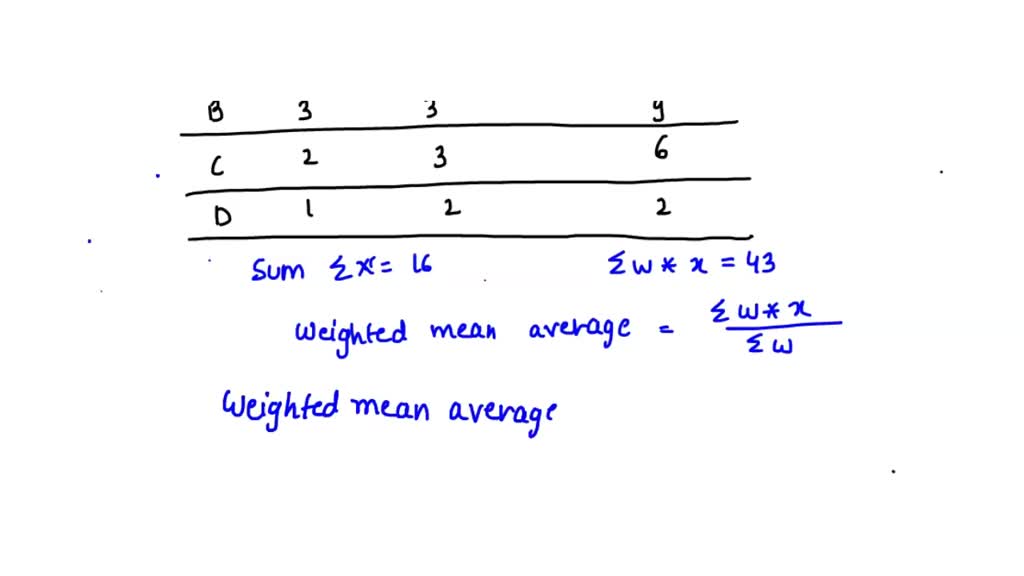 B 3 3 9
C 2 3 6
D 1 2 2
Sum Σx = 16 Σw * x = 43
Weighted mean average = Σw * x / Σw
Weighted mean average